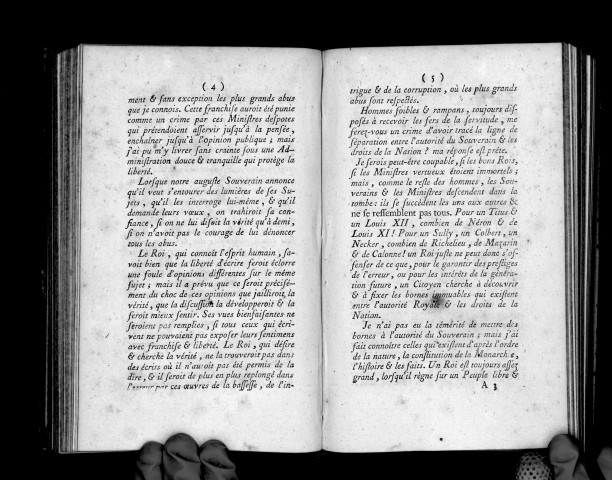 ( 4 )
ment & sans exception les plus grands abus
que je connois. Cette franchise auroit été punie
comme un crime par ces Ministres despotes
qui prétendoient asservir jusqu'à la pensée,
enchaîner jusqu'à l'opinion publique ; mais
j'ai pu m'y livrer sans crainte sous une Ad-
ministration douce & tranquille qui protège la
liberté.
Lorsque notre auguste Souverain annonce
qu'il veut s'entourer des lumières de ses Su-
jets, qu'il les interroge lui-même, & qu'il
demande leurs vœux, on trahiroit sa con-
fiance, si on ne lui disoit la vérité qu'à demi,
si on n'avoit pas le courage de lui dénoncer
tous les abus.
Le Roi, qui connoît l'esprit humain, sa-
voit bien que la liberté d'écrire feroit éclorre
une foule d'opinions différentes sur le même
sujet ; mais il a prévu que ce seroit précisé-
ment du choc de ces opinions que jailliroit la
vérité, que la discussion la développeroit & la
feroit mieux sentir. Ses vues bienfaisantes ne
seroient pas remplies, si tous ceux qui écri-
vent ne pouvoient pas exposer leurs sentimens
avec franchise & liberté. Le Roi, qui désire
& cherche la vérité, ne la trouveroit pas dans
des écrits où il n'auroit pas été permis de la
dire, & il seroit de plus en plus replongé dans
l'erreur par ces œuvres de la bassesse, de l'in-
( 5 )
trigue & de la corruption, où les plus grands
abus sont respectés.
Hommes foibles & rampans, toujours dis-
posés à recevoir les fers de la servitude, me
ferez-vous un crime d'avoir tracé la ligne de
séparation entre l'autorité du Souverain & les
droits de la Nation ? ma réponse est prête.
Je serois peut-être coupable, si les bons Rois,
si les Ministres vertueux étoient immortels ;
mais, comme le reste des hommes, les Sou-
verains & les Ministres descendent dans la
tombe : ils se succèdent les uns aux autres &
ne se ressemblent pas tous. Pour un Titus &
un Louis XII, combien de Néron & de
Louis XI ! Pour un Sully, un Colbert, un
Necker, combien de Richelieu, de Mazarin
& de Calonne ! un Roi juste ne peut donc s'of-
fenser de ce que, pour le garantir des prestiges
de l'erreur, ou pour les intérêts de la généra-
tion future, un Citoyen cherche à découvrir
& à fixer les bornes immuables qui existent
entre l'autorité Royale & les droits de la
Nation.
Je n'ai pas eu la témérité de mettre des
bornes à l'autorité du Souverain ; mais j'ai
fait connoître celles qui existent d'après l'ordre
de la nature, la constitution de la Monarchie,
l'histoire & les faits. Un Roi est toujours assez
grand, lorsqu'il règne sur un Peuple libre &
A 3